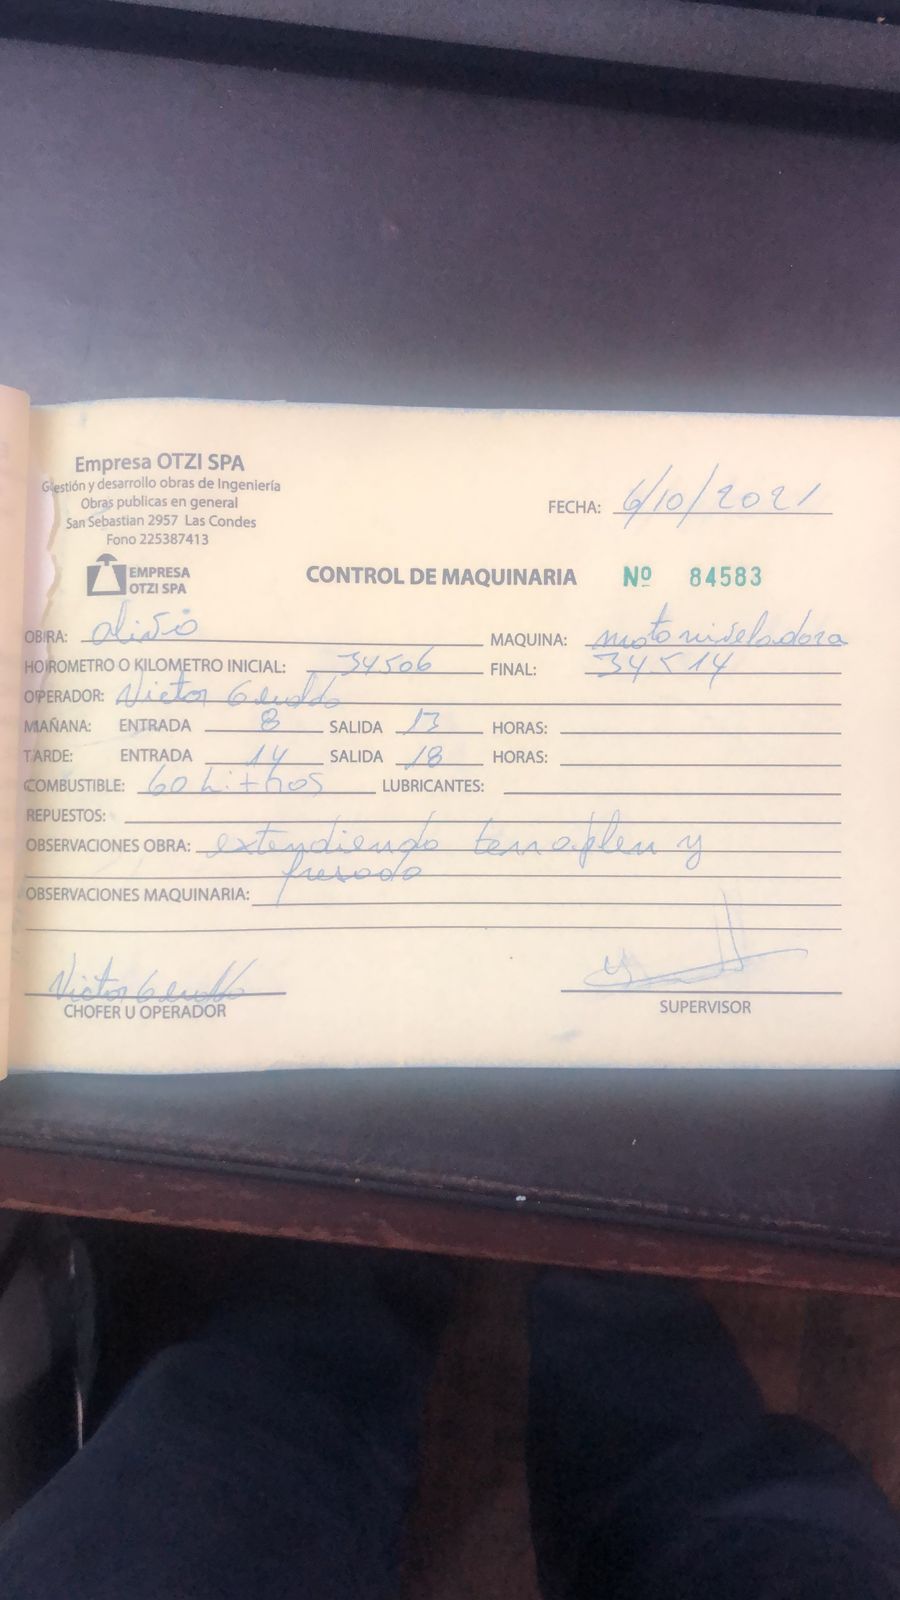 Empresa OTZI SPA
Gestión y desarrollo obras de Ingeniería
Obras publicas en general
San Sebastian 2957 Las Condes
Fono 225387413
FECHA: 6/10/2021
EMPRESA
OTZI SPA
CONTROL DE MAQUINARIA Nº 84583
OBRA: MAQUINA: motoniveladora
HOROMETRO O KILOMETRO INICIAL: 34506 FINAL: 34514
OPERADOR: Victor
MAÑANA: ENTRADA 8 SALIDA 13 HORAS:
TARDE: ENTRADA 14 SALIDA 18 HORAS:
COMBUSTIBLE: 60 Litros LUBRICANTES:
REPUESTOS:
OBSERVACIONES OBRA: extendiendo terraplen y
fresado
OBSERVACIONES MAQUINARIA:
Victor
CHOFER U OPERADOR
SUPERVISOR